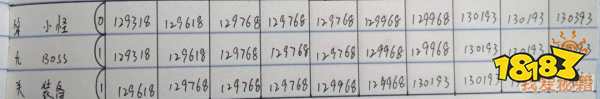 第 小怪 0 129318 129618 129768 129768 129768 129968 129968 130193 130193 130393
九 BOSS 1 129318 129618 129768 129768 129768 129968 129968 130193
关 装备 1 129618 129768 129768 129768 129968 129968 130193 130193
18183